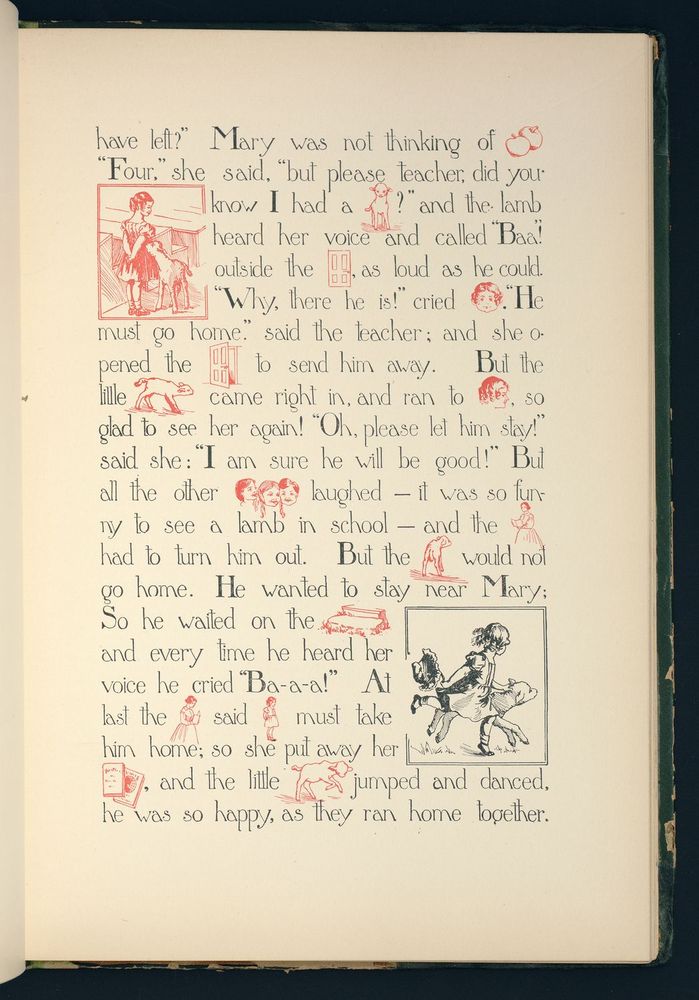 have left?" Mary was not thinking of
"Four," she said, "but please teacher, did you
know I had a ?" and the lamb
heard her voice and called "Baa"!
outside the , as loud as he could.
"Why, there he is!" cried . "He
must go home." said the teacher; and she o-
pened the to send him away. But the
little came right in, and ran to , so
glad to see her again! "Oh, please let him stay!"
said she: "I am sure he will be good!" But
all the other laughed — it was so fun-
ny to see a lamb in school — and the
had to turn him out. But the would not
go home. He wanted to stay near Mary;
So he waited on the
and every time he heard her
voice he cried "Ba-a-a!" At
last the said must take
him home; so she put away her
, and the little jumped and danced,
he was so happy, as they ran home together.